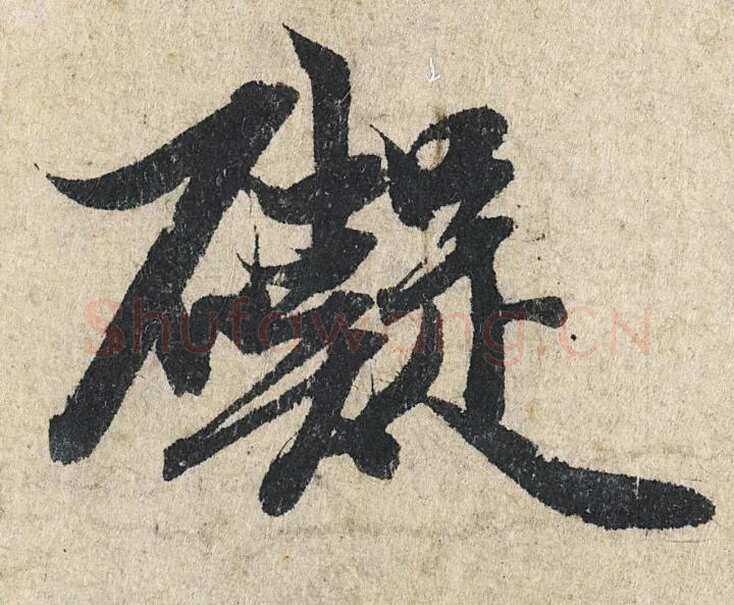 礙
Shufawang.CN